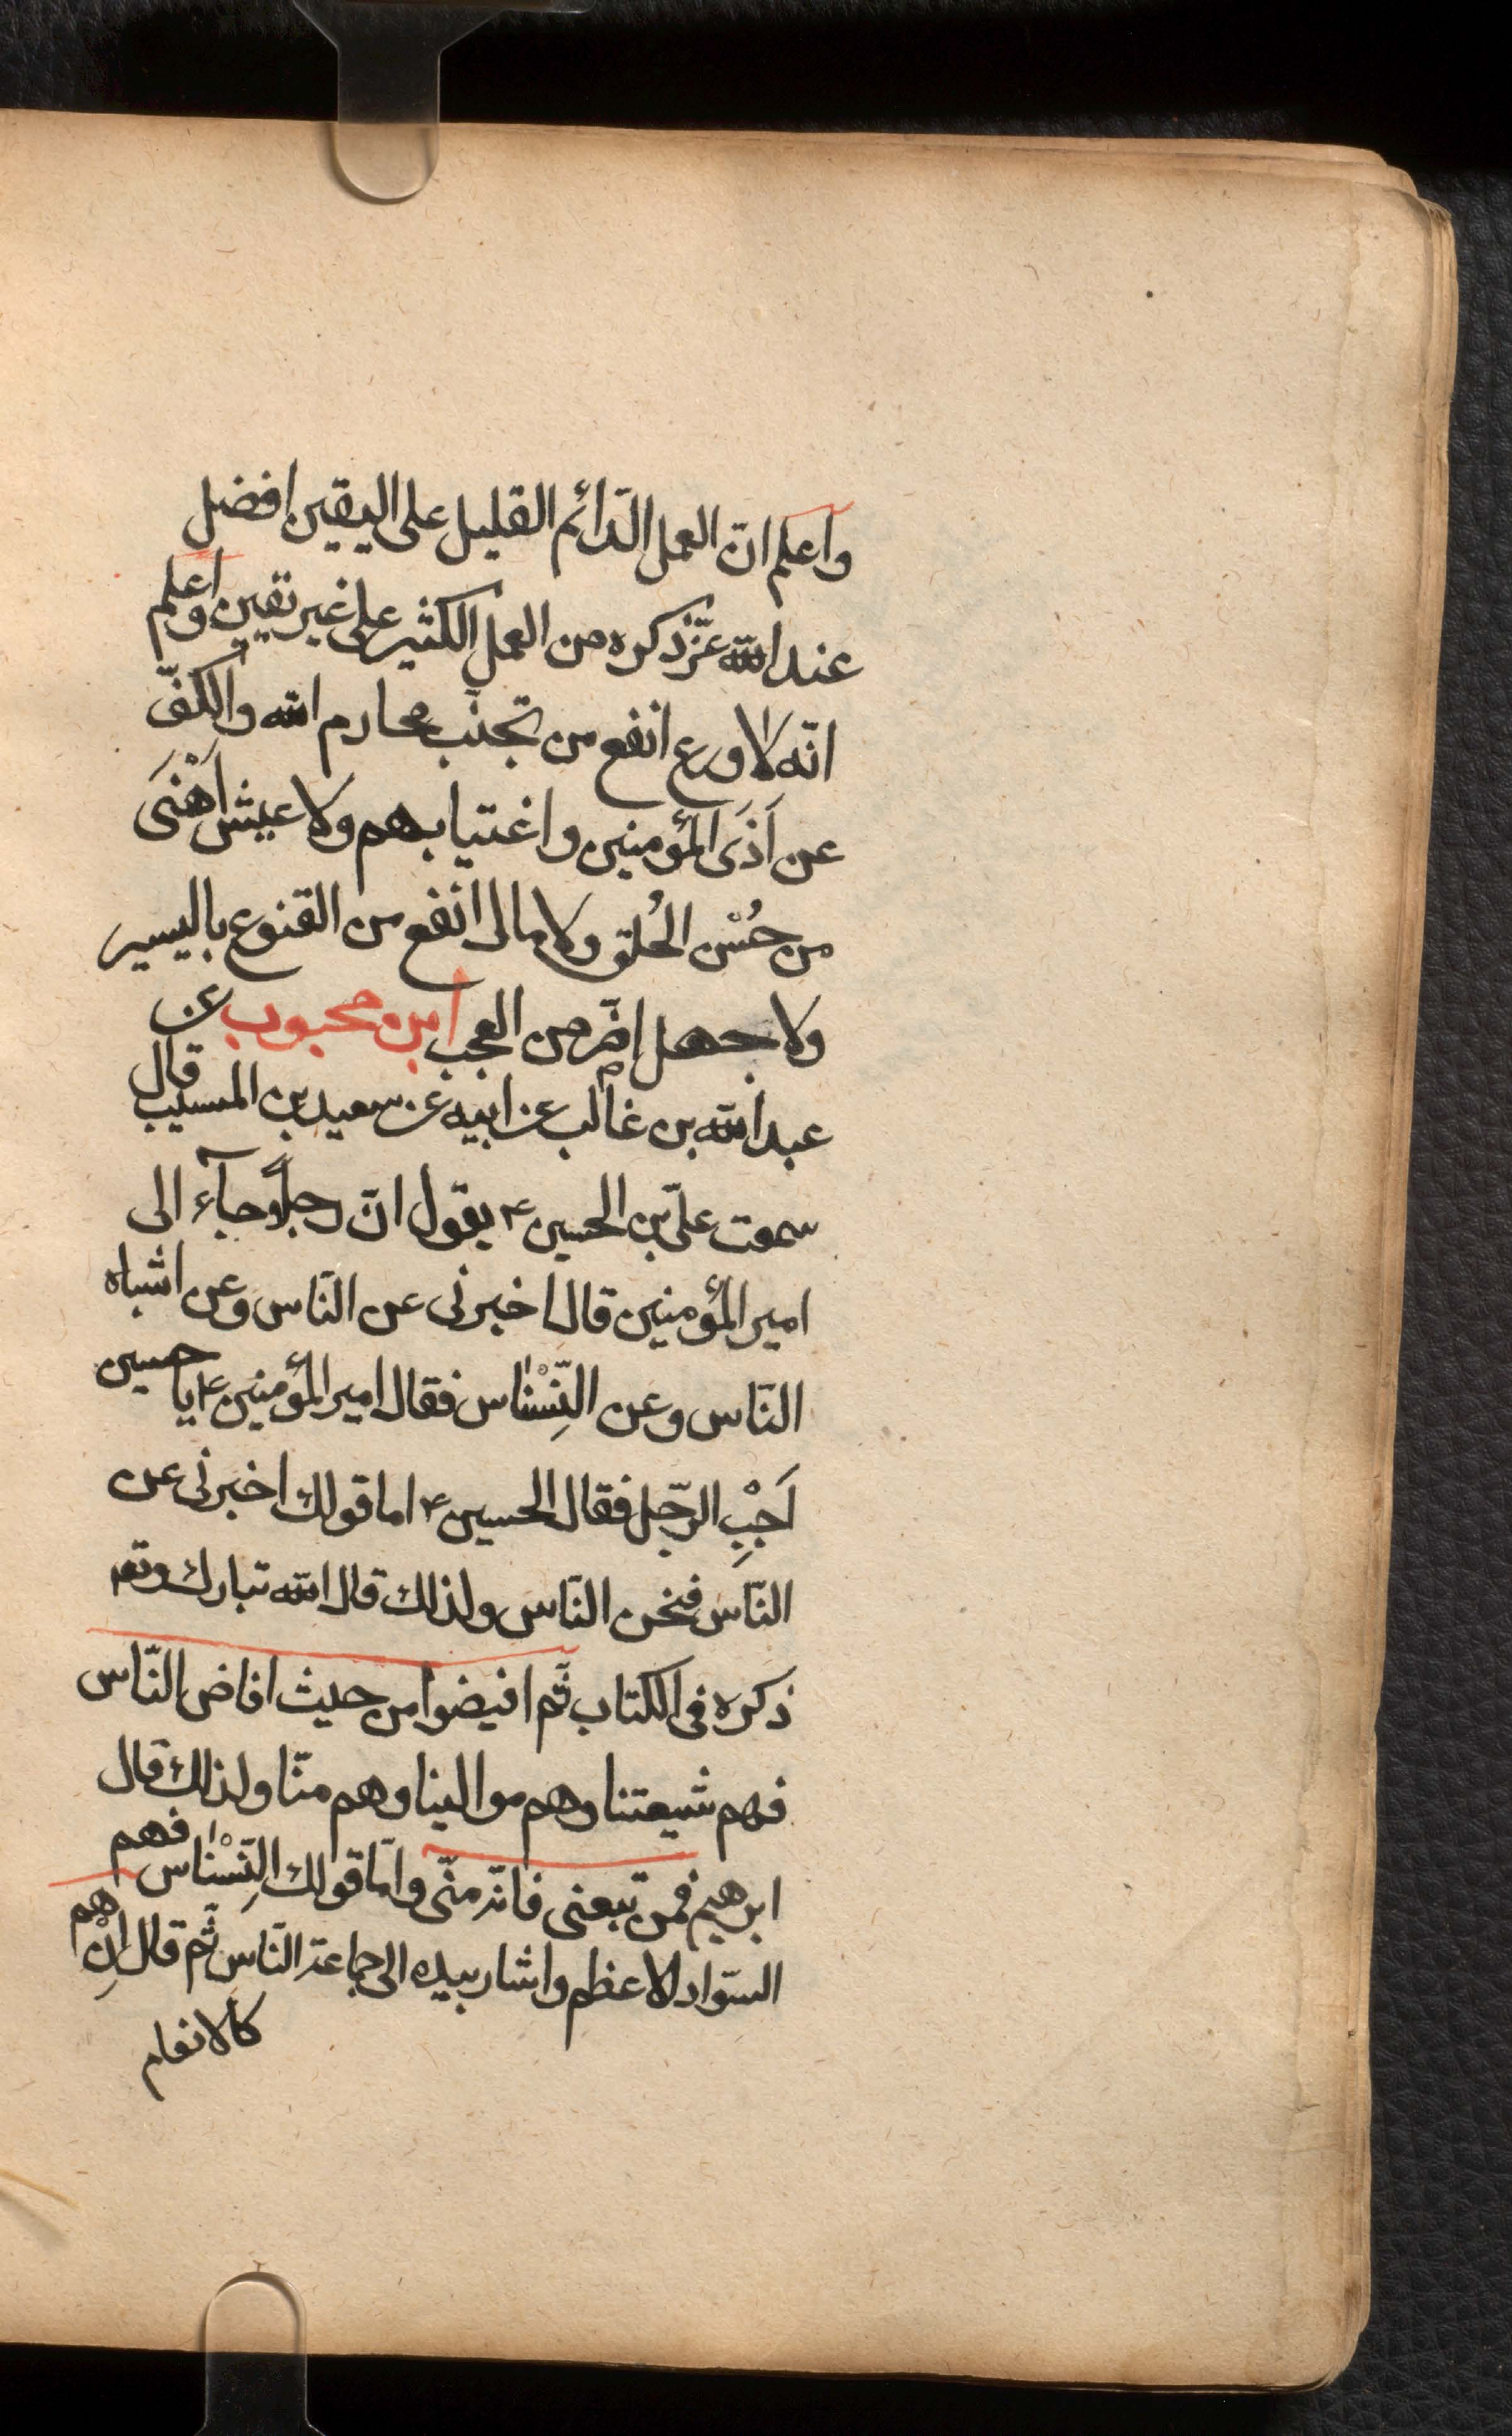 واعلم انّ العمل الدّائم القليل على اليقين افضل
عند الله عزّ ذكره من العمل الكثير على غير يقين واعلم
انّه لا ورع انفع من تجنّب محارم الله والكفّ
عن اَذَى المؤمنين واغتيابهم ولا عيش اَهْنَى
من حُسْن الخُلق ولا مال انفع من القنوع باليسير
ولا جهل اضرّ من العجب ابن محبوب عن
عبد الله بن غالب عن ابيه عن سعيد بن المسيب قال
سمعت علىّ بن الحسين ع يقول انّ رجلاً جآء الى
امير المؤمنين قال اخبرنى عن النّاس وعن اشباه
النّاس وعن النِّسْناس فقال امير المؤمنين ع يا حسين
اَجِبِ الرّجل فقال الحسين ع اما قولك اخبرنى عن
النّاس فنحن النّاس ولذلك قال الله تبارك وتعم
ذكره فى الكتاب ثّم افيضوا من حيث افاض النّاس
فهم شيعتنا وهم موالينا وهم منّا ولذلك قال
ابرهيم فمن تبعنى فانّه منّى وامّا قولك النِّسْناس فهم
السّواد الاعظم واشار بيده الى جماعة النّاس ثّم قال اِنْ هم
كالانعام